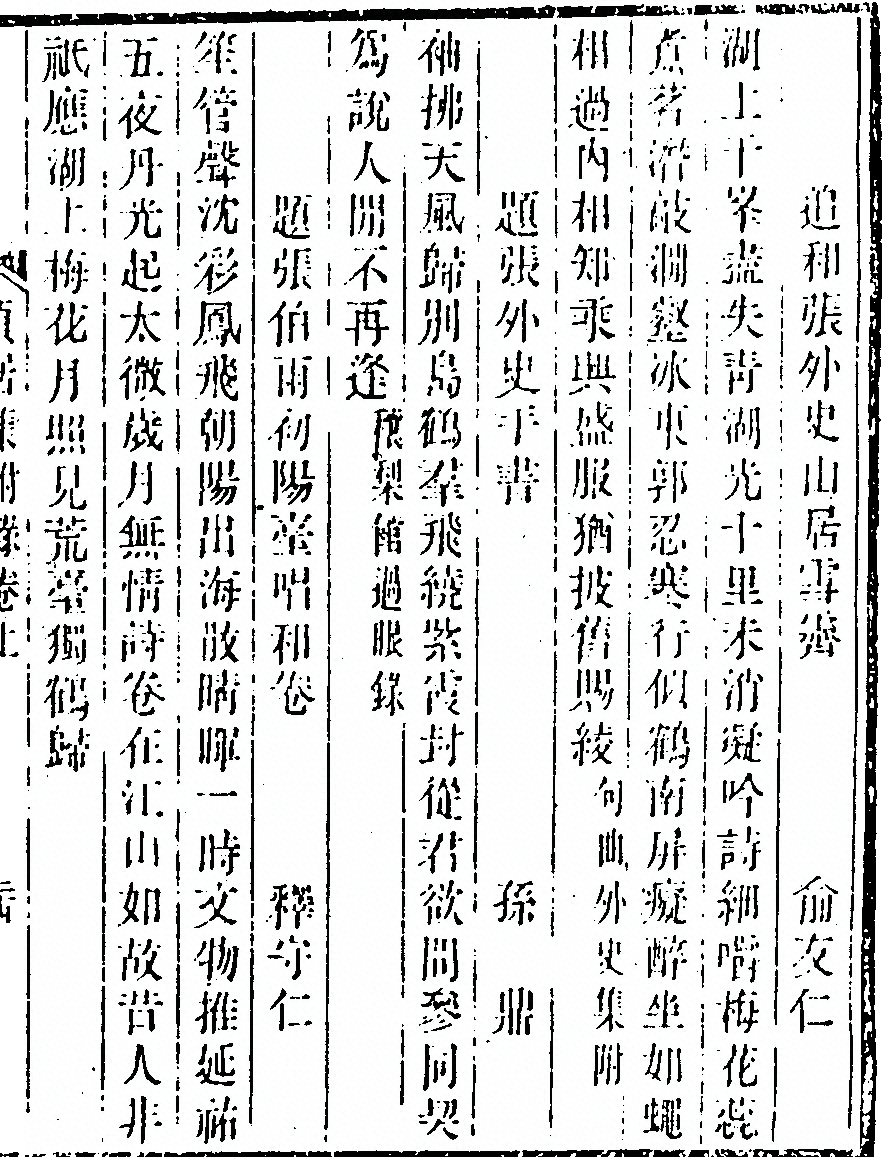 追和張外史山居雪霽　俞友仁
湖上千峯盡失青湖光十里未消凝吟詩細嚼梅花蕊
煮茗潛敲澗壑冰東郭忍寒行似鶴南屏癡醉坐如蠅
相過內相知乘興盛服猶披舊賜綾句曲外史集附
題張外史手書　孫鼎
袖拂天風歸別島鶴羣飛繞紫霞封從君欲問參同契
爲說人間不再逢穰棃館過眼錄
題張伯雨初陽臺唱和卷　釋守仁
笙管聲沈彩鳳飛朝陽出海散晴暉一時文物推延祐
五夜丹光起太微歲月無情詩卷在江山如故昔人非
祇應湖上梅花月照見荒臺獨鶴歸
貞居集附錄卷上